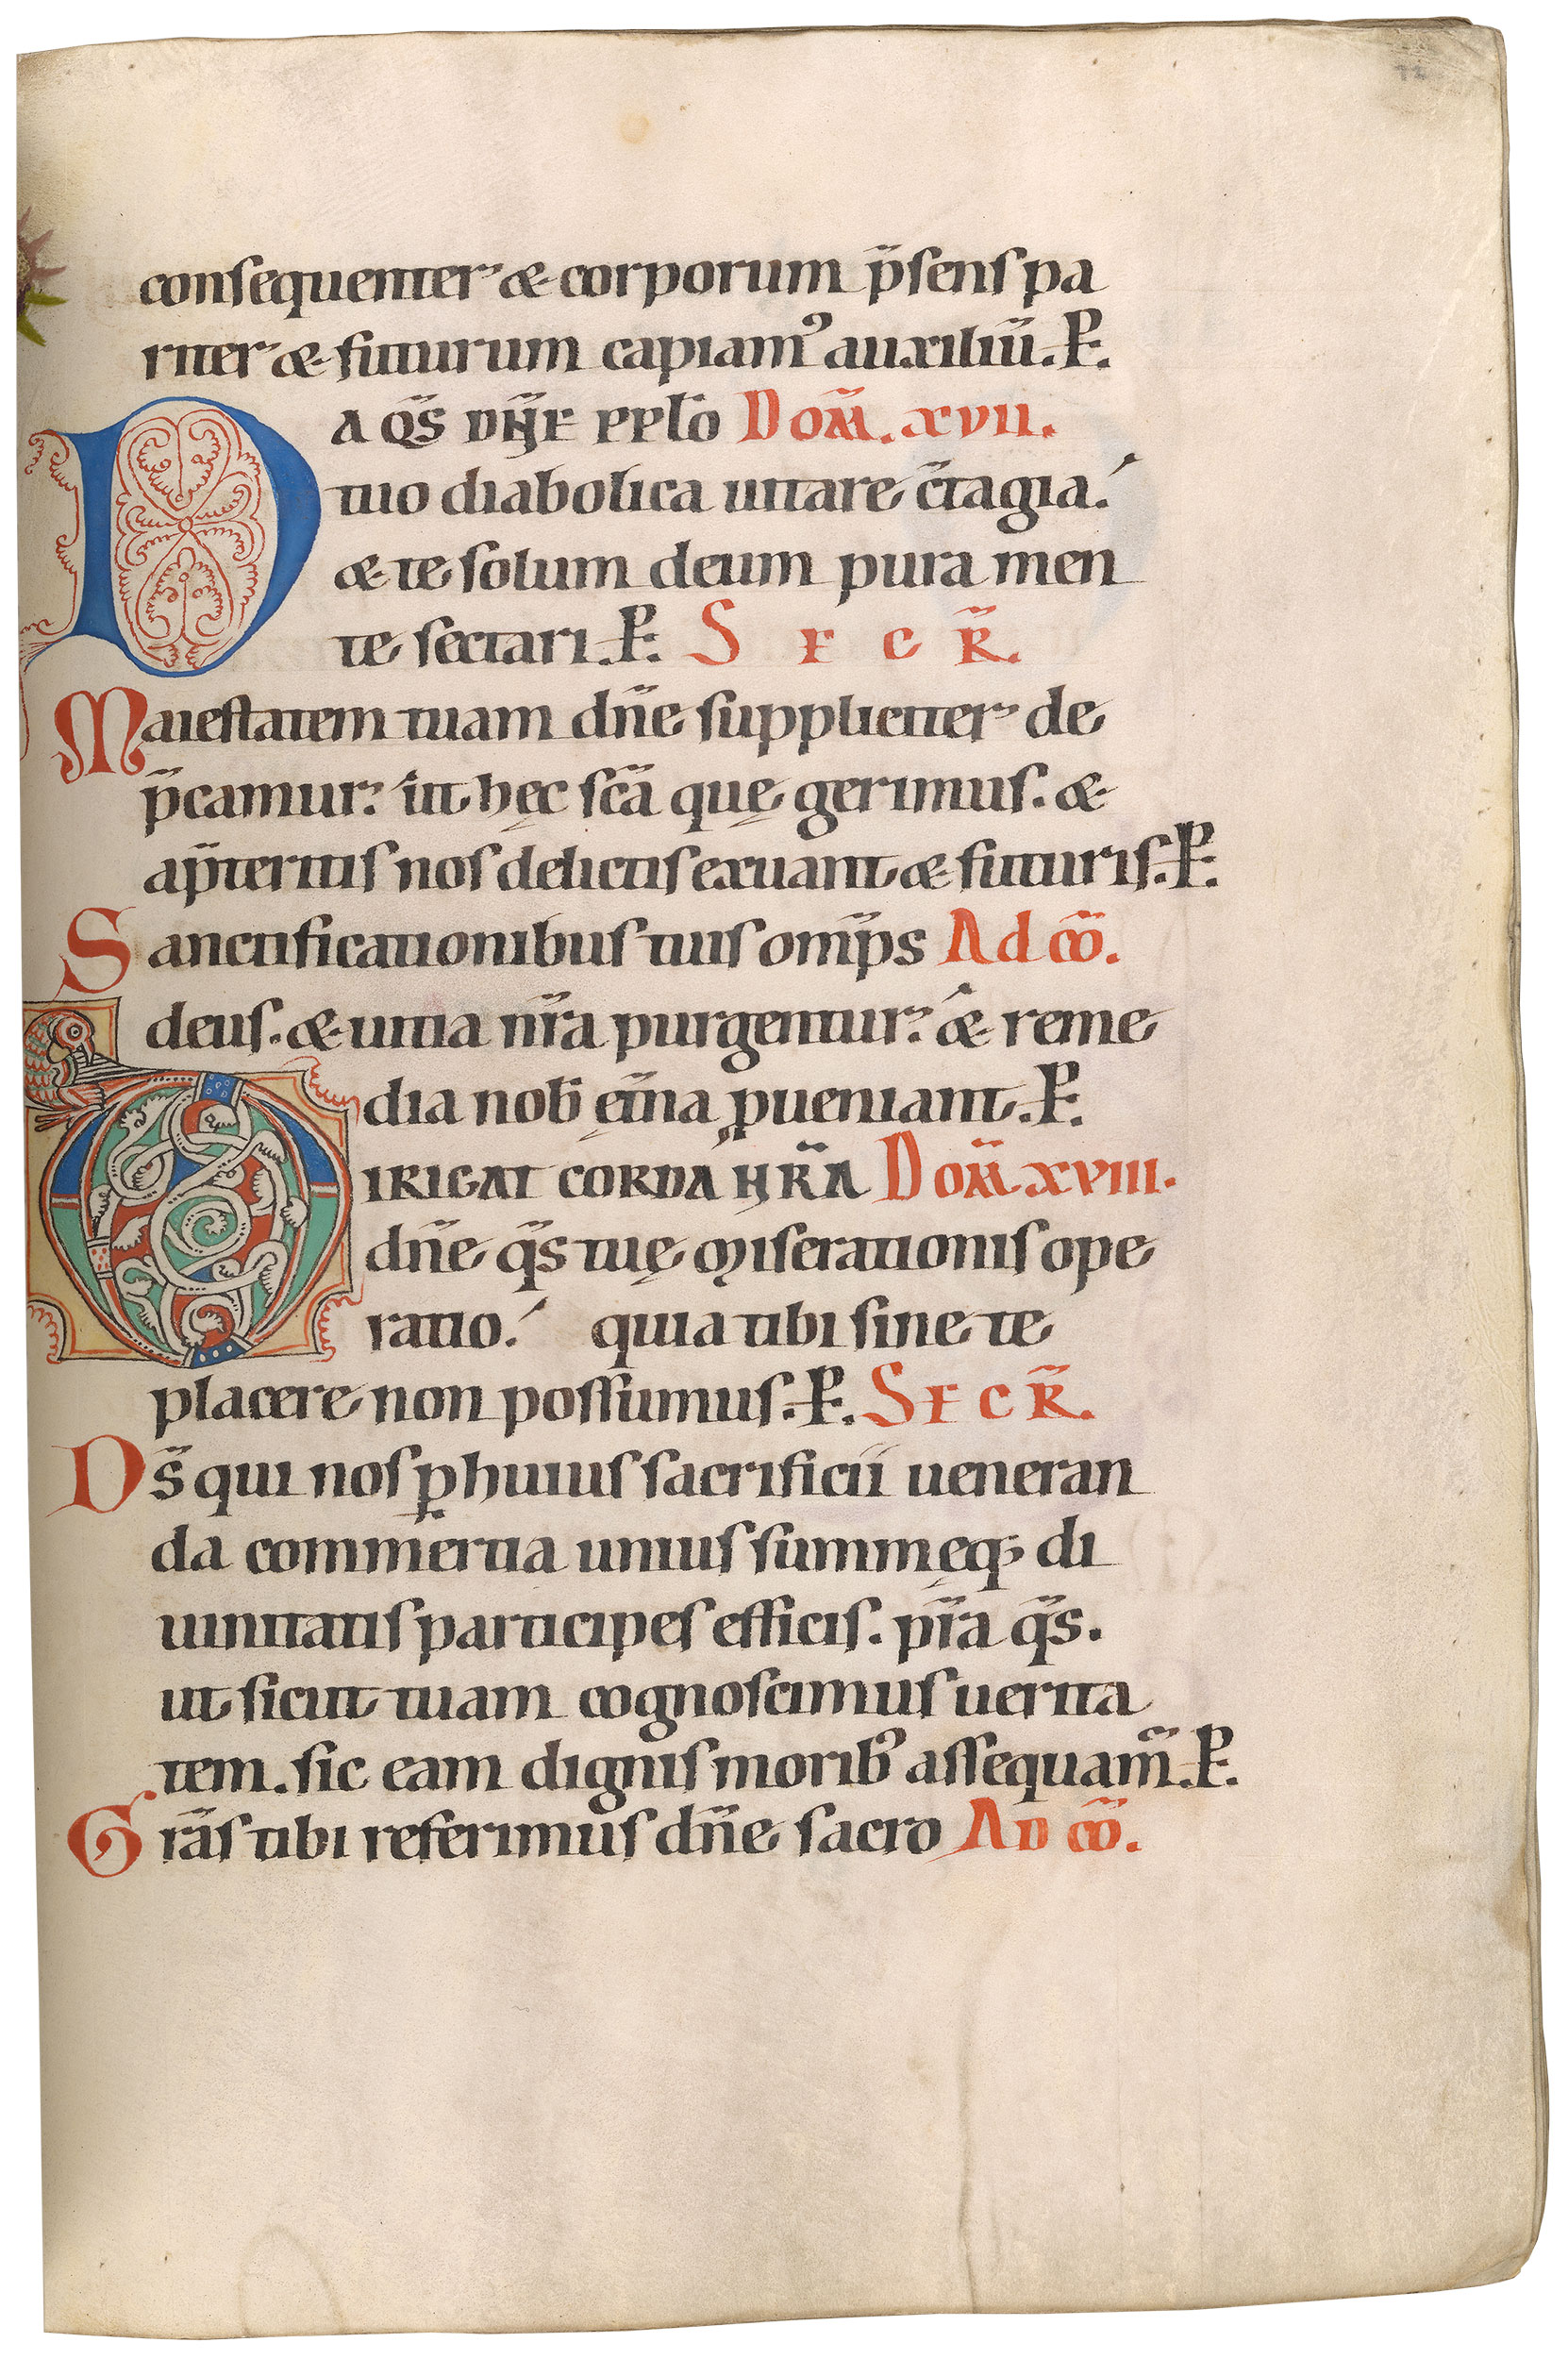 consequenter & corporum p̄sens pa
riter & futurum capiam᾿ auxiliū. P.
DA QS̄ DN̄E PPLO DOM̄. XVII.
tuo diabolica uitare c̄tagia.
& te solum deum pura men
te sectari. P. SECR̄.
Maiestatem tuam dn̄e suppliciter de
p̄camur. ut hęc sc̄a quę gerimus. &
ap̄teritis nos delictis exuant & futuris. P.
Sanctificationibus tuis omp̄s Ad cō.
deus. & uitia nr̄a purgentur. & reme
dia nob̄ ęt̄na ꝓueniant. P.
DIRIGAT CORDA NR̄A DOM̄ XVIII.
dn̄e qs̄ tuę miserationis ope
ratio. quia tibi sine te
placere non possumus. P. SECR̄.
Ds̄ qui nos ꝑ huius sacrificii ueneran
da commertia unius summęq; di
uinitatis participes efficis. pr̄a qs̄.
ut sicut tuam cognoscimus uerita
tem. sic eam dignis morib᾿ assequam̄. P.
Gr̄as tibi referimus dn̄e sacro AD cō.